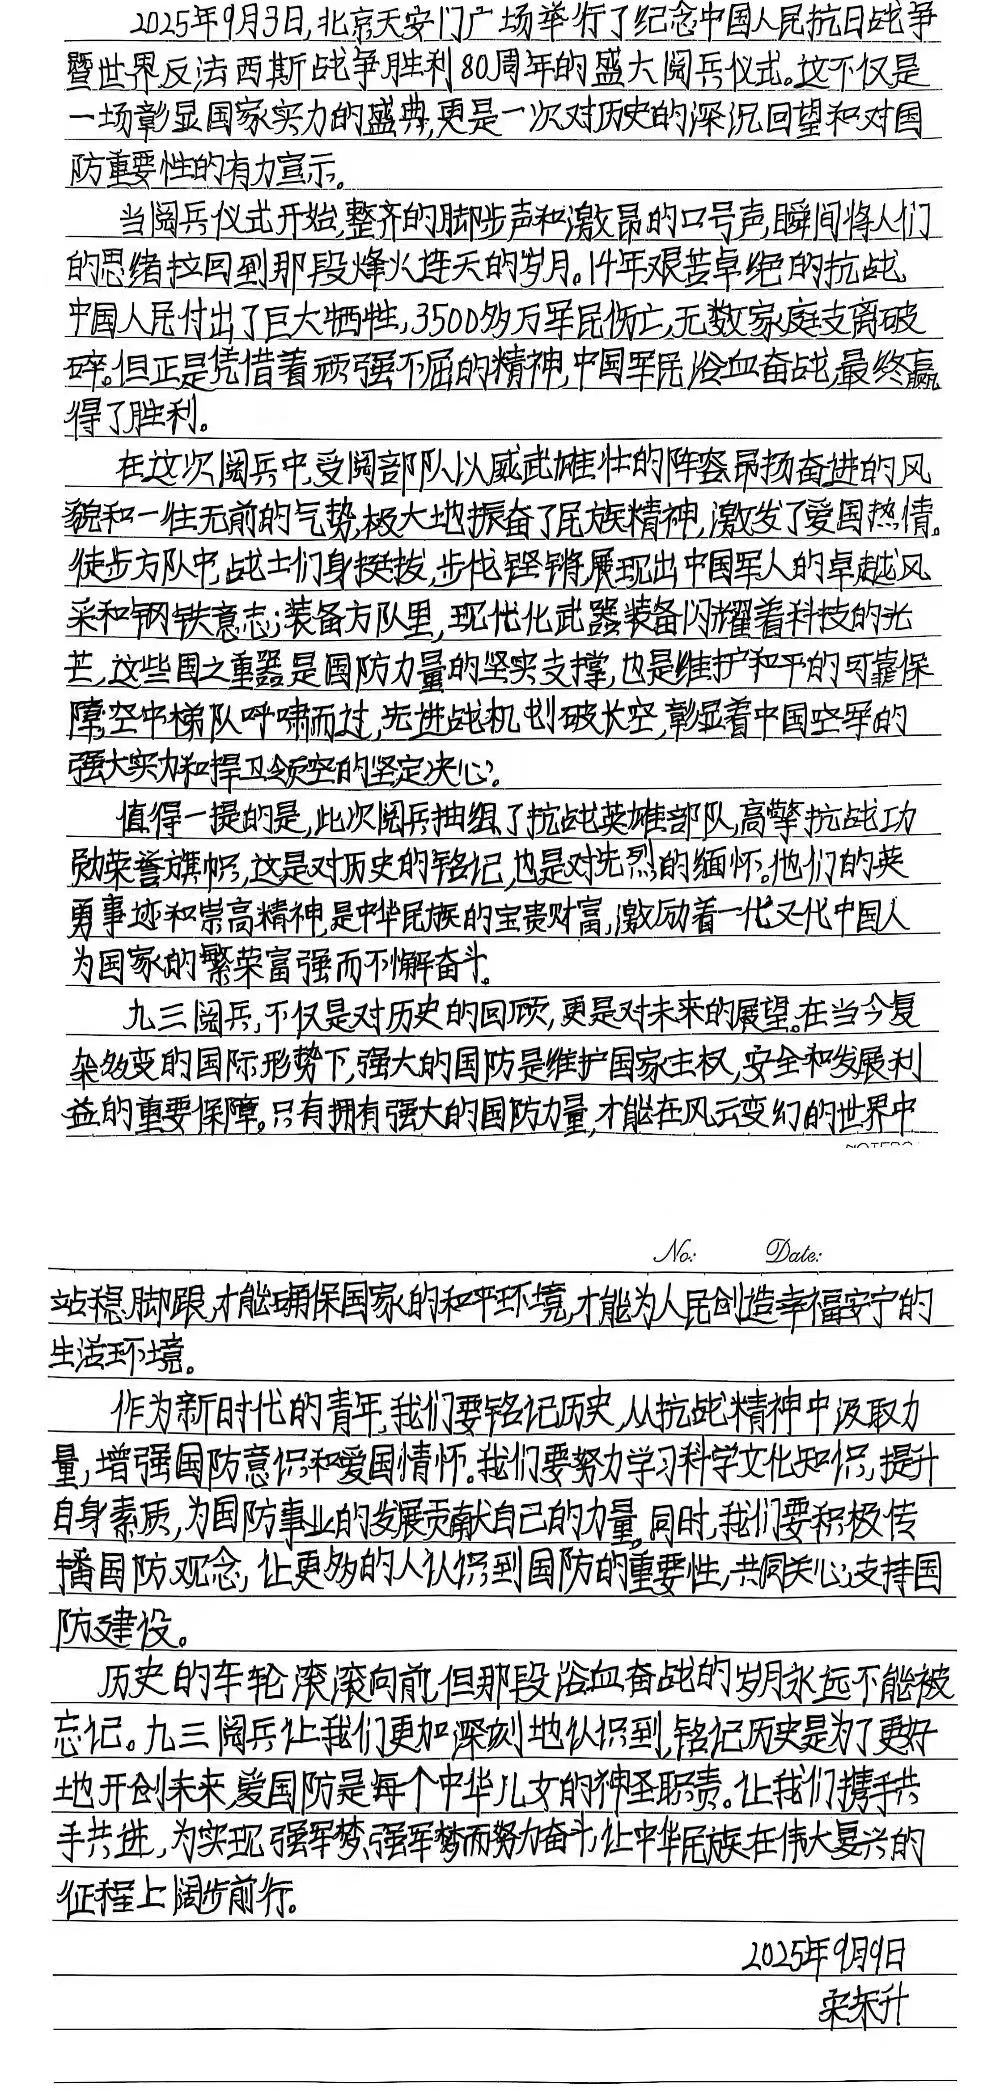 2025年9月3日,北京天安门广场举行了纪念中国人民抗日战争
暨世界反法西斯战争胜利80周年的盛大阅兵仪式。这不仅是
一场彰显国家实力的盛典,更是一次对历史的深沉回望和对国
防重要性的有力宣示。
当阅兵仪式开始,整齐的脚步声和激昂的口号声,瞬间将人们
的思绪拉回到那段烽火连天的岁月。14年艰苦卓绝的抗战,
中国人民付出了巨大牺牲,3500多万军民伤亡,无数家庭支离破
碎。但正是凭借着顽强不屈的精神,中国军民浴血奋战,最终赢
得了胜利。
在这次阅兵中,受阅部队以威武雄壮的阵容昂扬奋进的风
貌和一往无前的气势,极大地振奋了民族精神,激发了爱国热情。
徒步方队中,战士们身姿挺拔,步伐铿锵,展现出中国军人的卓越风
采和钢铁意志;装备方队里,现代化武器装备闪耀着科技的光
芒,这些国之重器是国防力量的坚实支撑,也是维护和平的可靠保
障;空中梯队呼啸而过,先进战机划破长空,彰显着中国空军的
强大实力和捍卫领空的坚定决心。
值得一提的是,此次阅兵抽组了抗战英雄部队,高擎抗战功
勋荣誉旗帜,这是对历史的铭记,也是对先烈的缅怀。他们的英
勇事迹和崇高精神,是中华民族的宝贵财富,激励着一代又一代中国人
为国家的繁荣富强而不懈奋斗。
九三阅兵,不仅是对历史的回顾,更是对未来的展望。在当今复
杂多变的国际形势下,强大的国防是维护国家主权,安全和发展利
益的重要保障。只有拥有强大的国防力量,才能在风云变幻的世界中
No: Date:
站稳脚跟,才能确保国家的和平环境,才能为人民创造幸福安宁的
生活环境。
作为新时代的青年,我们要铭记历史,从抗战精神中汲取力
量,增强国防意识和爱国情怀。我们要努力学习科学文化知识,提升
自身素质,为国防事业的发展贡献自己的力量。同时,我们要积极传
播国防观念,让更多的人认识到国防的重要性,共同关心,支持国
防建设。
历史的车轮滚滚向前,但那段浴血奋战的岁月永远不能被
忘记。九三阅兵让我们更加深刻地认识到,铭记历史是为了更好
地开创未来,爱国防是每个中华儿女的神圣职责。让我们携手共
手共进,为实现强军梦、强军梦而努力奋斗,让中华民族在伟大复兴的
征程上阔步前行。
2025年9月9日
宋东升